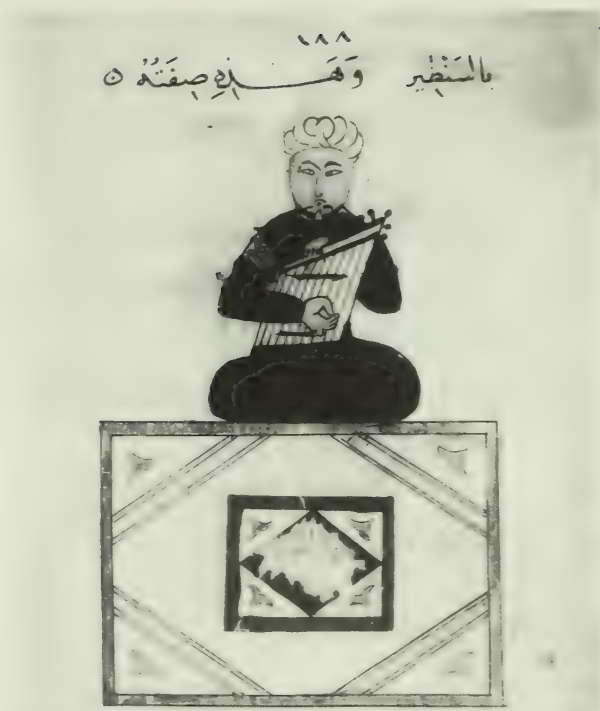 ١٨٨
بالسَنْطِير وَهَـــذِهِ صِفَتُهُ